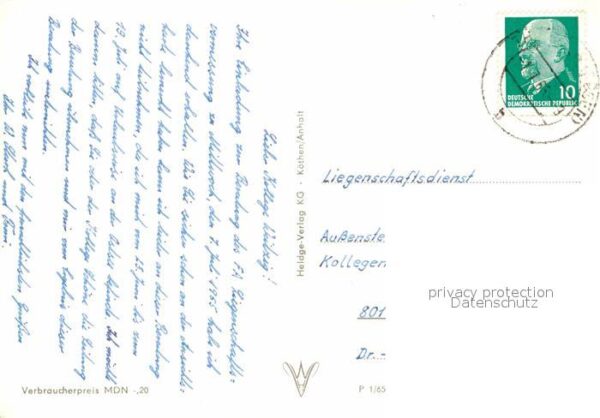 Lieber Kollege
Ihre Einladung zur Beratung des FA Liegenschafts-
vermessung zu Mittwoch, den 7. Juli 1965 habe ich
dankend erhalten. Wie Sie sicher schon an der Ansichts-
karte bemerkt haben kann ich leider an dieser Beratung
nicht teilnehmen, da ich mich vom 25. Juni bis zum
10. Juli auf Urlaubsreise an der Ostsee befinde. Ich möchte
darum bitten, daß Sie oder der Kollege die Leitung
der Beratung übernehmen und mir vom Ergebnis dieser
Beratung
Ich verbleibe nun mit den freundlichsten Grüßen
Ihr und
Verbraucherpreis MDN -,20
Heldge-Verlag KG · Köthen/Anhalt
P 1/65
DEUTSCHE
DEMOKRATISCHE REPUBLIK
10
Liegenschaftsdienst
Außenste
Kollegen
801
Dr.-
privacy protection
Datenschutz